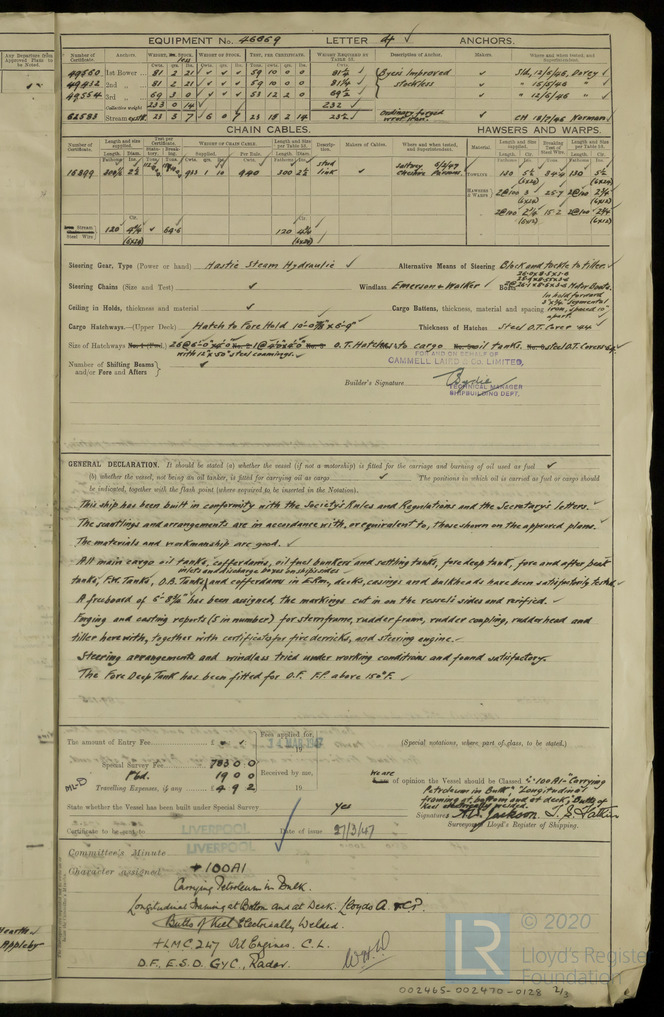 Any Departure from
Approved Plans to
be Noted.
EQUIPMENT No. 46869 LETTER ANCHORS.
Number of Certificate. Anchors. WEIGHT, Ex. STOCK. WEIGHT OF STOCK. TEST, PER CERTIFICATE. WEIGHT REQUIRED BY TABLE 53. Description of Anchor. Makers. Where and when tested, and Superintendent.
49560 1st Bower 81 2 21 59 10 0 0 81½ Byers Improved Sld, 12/6/46, Dovey
49432 2nd 81 2 21 59 10 0 0 81½ stockless " 15/5/46 "
49554 3rd 69 3 0 53 12 2 0 69½ " 12/6/46 "
Collective weight 233 0 14 232
62583 Stream 23 3 7 6 0 7 23 18 2 14 23½ Ordinary forged wrot iron. CH 18/7/46 Norman
CHAIN CABLES. HAWSERS AND WARPS.
Number of Certificate. Length and size supplied. Test per Certificate. WEIGHT OF CHAIN CABLE. Length and size per Table 53. Description. Makers of Cables. Where and when tested, and Superintendent. Material. Length and size supplied. Breaking Test of Steel Wire. Length and size per Table 53.
15899 300 923 1 10 940 300 2¾ stud link Saltney Chester Parsons TOWLINE 130 5½ 130 5½
(6x24) (6x24)
HAWSERS & WARPS 2@100 3 25.7 2@100 2¾
(6x24) (6x12)
2@100 2¼ 15.2 2@100 2¾
(6x12)
Stream Steel Wire 120 4¾ 69.6 120 4¾
(6x24) (6x24)
Steering Gear, Type (Power or hand) Hastie Steam Hydraulic Alternative Means of Steering Block and tackle to tiller.
Steering Chains (Size and Test) Windlass Emerson & Walker Boats Motor Boats.
Ceiling in Holds, thickness and material Cargo Battens, thickness, material and spacing In hold forward segmental iron, spaced 10" apart.
Cargo Hatchways.—(Upper Deck) Hatch to Fore Hold Thickness of Hatches Steel O.T. Cover
Size of Hatchways O.T. Hatches to cargo oil tanks. steel O.T. Covers
with 12" x .50" steel coamings.
Number of Shifting Beams
and/or Fore and Afters
FOR AND ON BEHALF OF
CAMMELL LAIRD & Co. LIMITED,
Builder's Signature
TECHNICAL MANAGER
SHIPBUILDING DEPT.
GENERAL DECLARATION. It should be stated (a) whether the vessel (if not a motorship) is fitted for the carriage and burning of oil used as fuel
(b) whether the vessel, not being an oil tanker, is fitted for carrying oil as cargo The positions in which oil is carried as fuel or cargo should
be indicated, together with the flash point (where required to be inserted in the Notation).
This ship has been built in conformity with the Society's Rules and Regulations and the Secretary's letters.
The scantlings and arrangements are in accordance with, or equivalent to, those shown on the approved plans.
The materials and workmanship are good.
All main cargo oil tanks, cofferdams, oil fuel bunkers and settling tanks, fore deep tank, fore and after peak
inlets and discharge boxes on ship sides
tanks, F.W. Tanks, D.B. Tanks, and cofferdams in E.Rm, decks, casings and bulkheads have been satisfactorily tested.
A freeboard of 6'-8¾" has been assigned, the markings cut in on the vessel's sides and verified.
Forging and casting reports (5 in number) for sternframe, rudder frame, rudder coupling, rudderhead and
tiller herewith, together with certificates for five derricks, and steering engine.
Steering arrangements and windlass tried under working conditions and found satisfactory.
The Fore Deep Tank has been fitted for O.F. F.P. above 150°F.
The amount of Entry Fee £ Fees applied for, 19
(Special notations, where part of class, to be stated.)
Special Survey Fee 783 0 0
Fbd. 19 0 0 Received by me,
ML-D Travelling Expenses, if any £ 4 9 2 19
We are of opinion the Vessel should be Classed +100A1 "Carrying
Petroleum in Bulk" "Longitudinal
framing at bottom and at deck", "Butts of
Keel electrically welded.
State whether the Vessel has been built under Special Survey Yes
Signature A.D. Jackson.
Surveyor Lloyd's Register of Shipping.
Certificate to be sent to LIVERPOOL Date of issue 27/3/47
LIVERPOOL
Committee's Minute
Character assigned +100A1
Carrying Petroleum in Bulk.
Longitudinal Framing at Bottom and at Deck. Lloyds A & CP.
Butts of Keel Electrically Welded.
+LMC 2,47 Oil Engines. C.L.
D.F., E.S.D. GyC, Radar.
Hearth
Appleby
LR © 2020
Lloyd's Register
Foundation
002465-002470-0128 2/3